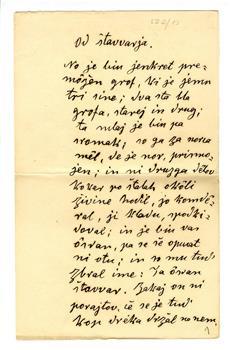 Od štavvarja.
No je biu jenkret pre-
môžen grof, ki je jemu
tri sine; dva sta bla
grofa, starej in drug;
ta mlaj je biu pa
vomak; so ga za norca
mêl, de je nor, primo-
žen; in ni druzga delov
kokar po štalah okôli
živine hodil, jo komdê-
ral, ji kladu, podki-
doval; in je biu vas
ôsran, pa se je opusat
ni otu; in so mu tud'
zbral ime: Ta ôsran
štavvar. Zakaj on ni
porajtov, če se je tud'
koje drêka držal na nem.